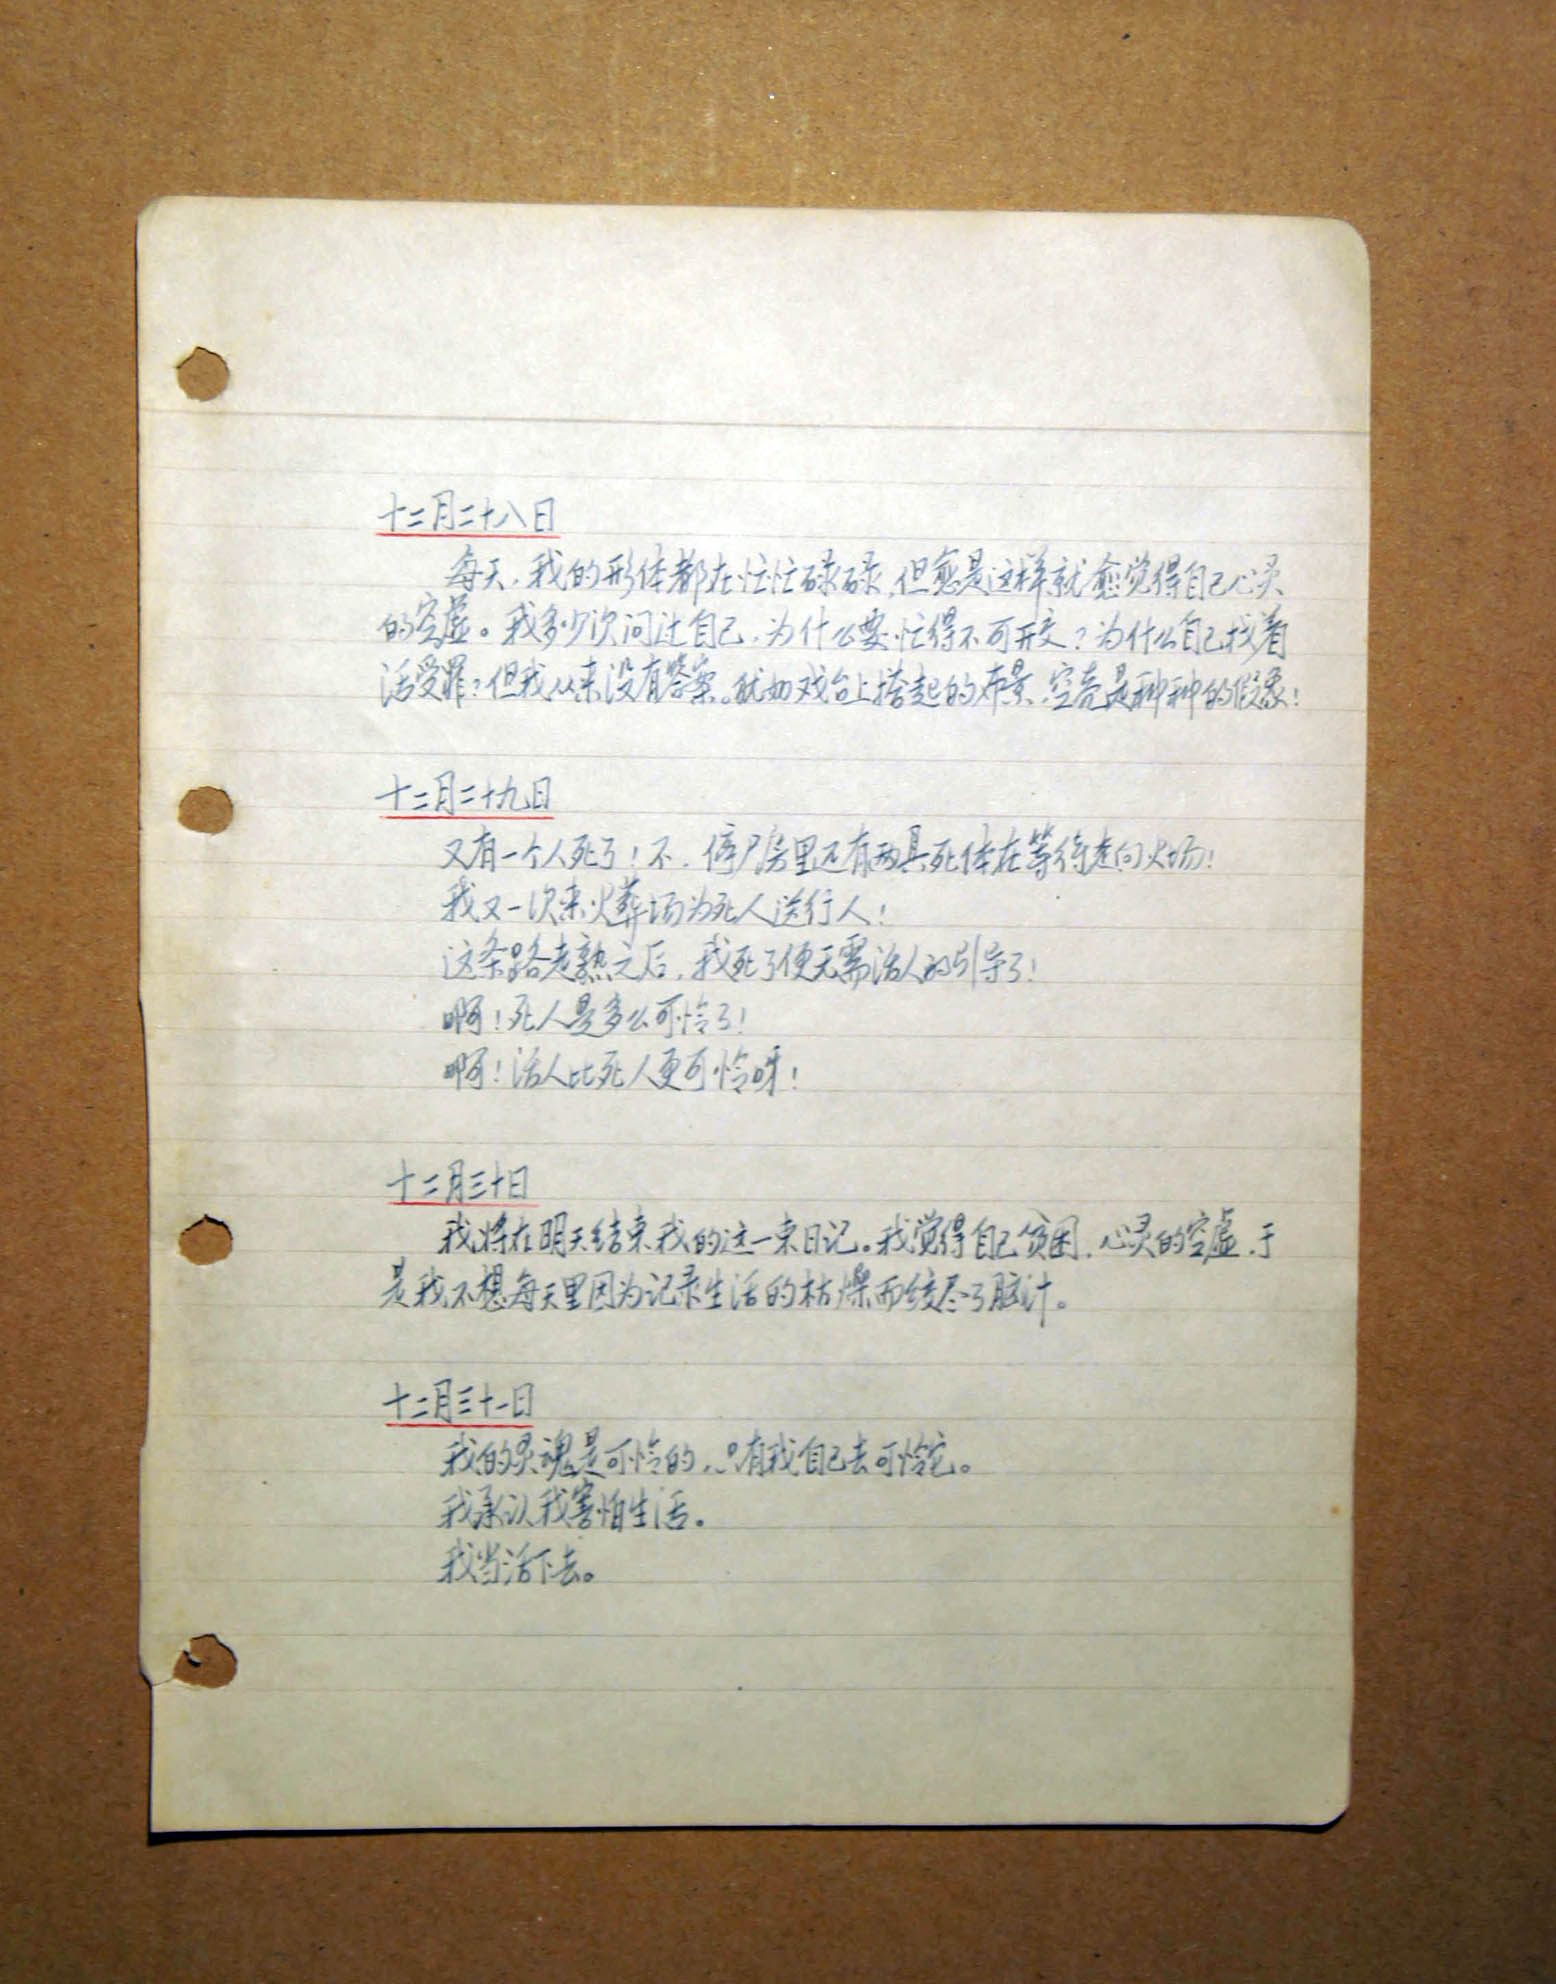 十二月二十八日
每天，我的形体都在忙忙碌碌，但愈是这样就愈觉得自己心灵
的空虚。我多少次问过自己，为什么要忙得不可开交？为什么自己找着
活受罪？但我从来没有答案。犹如戏台上搭起的布景，空壳是种种的假象！
十二月二十九日
又有一个人死了！不，停尸房里还有两具死体在等待走向火场！
我又一次来火葬场为死人送行人！
这条路走熟之后，我死了便无需活人的引导了！
啊！死人是多么可怜了！
啊！活人比死人更可怜呀！
十二月三十日
我将在明天结束我的这一束日记。我觉得自己贫困，心灵的空虚，于
是我不想每天里因为记录生活的枯燥而绞尽了脑汁。
十二月三十一日
我的灵魂是可怜的，只有我自己去可怜它。
我承认我害怕生活。
我当活下去。